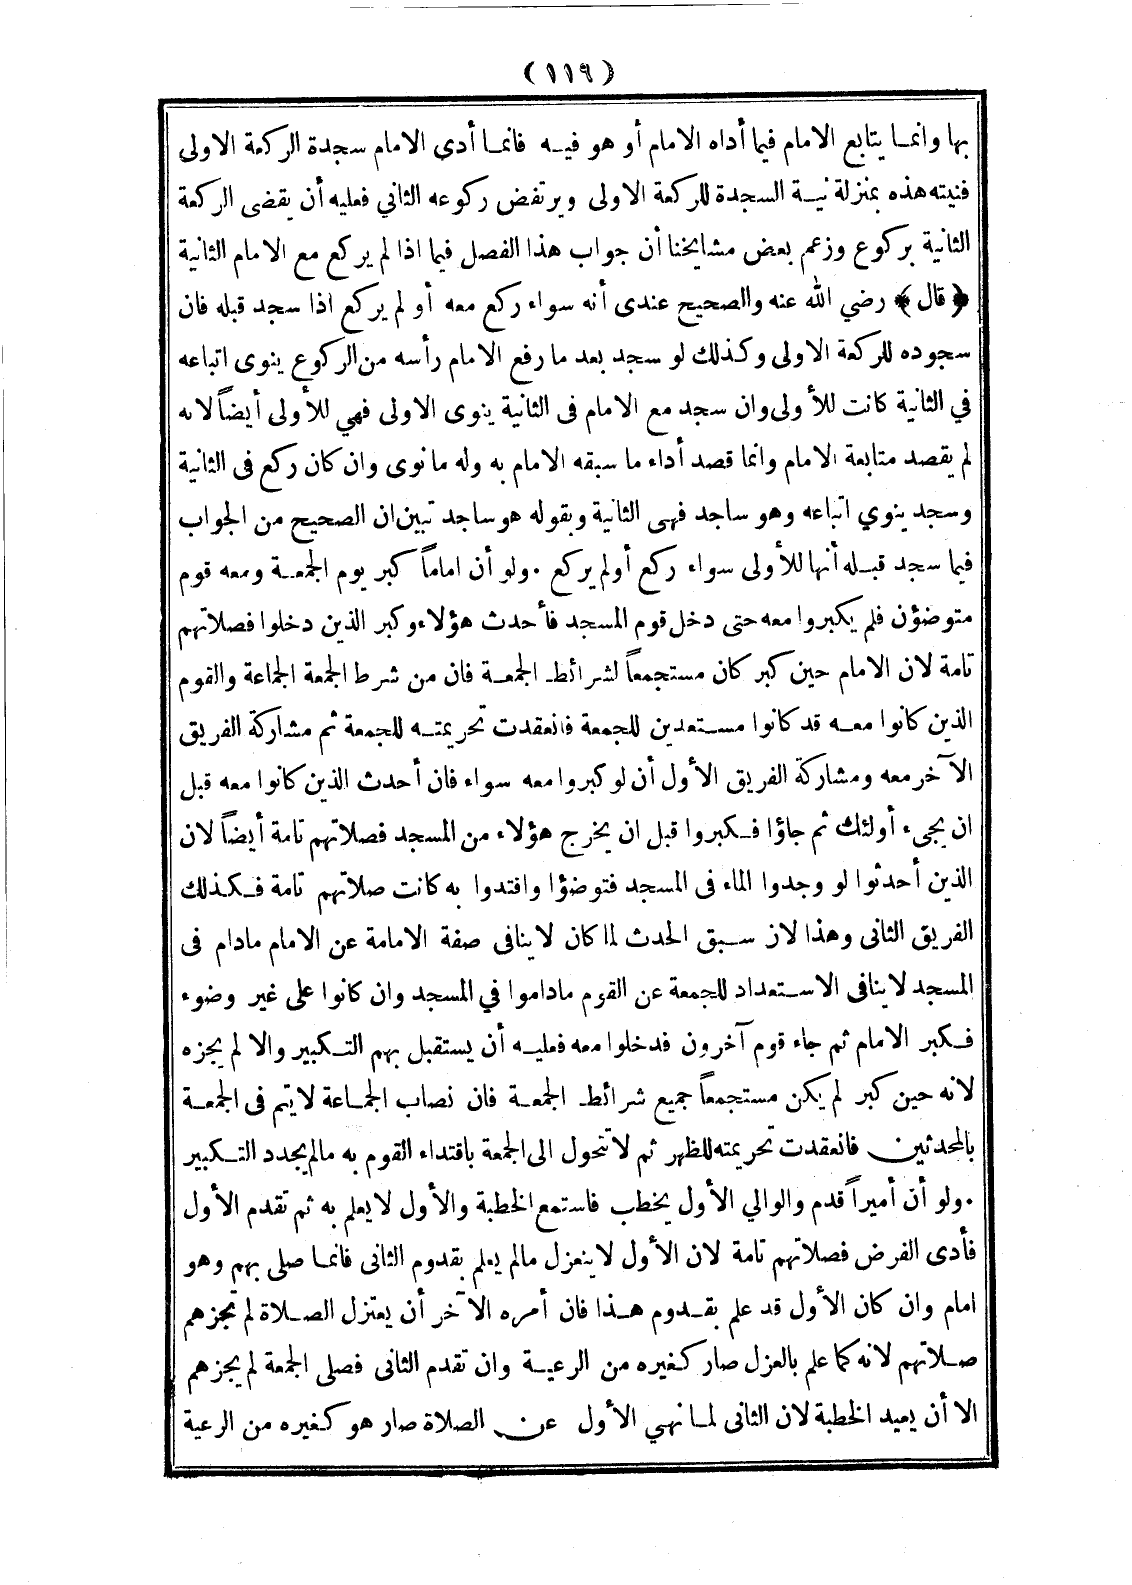 (١١٩)
بها وانما يتابع الامام فيما أداه الامام أو هو فيه فانما أدى الامام سجدة الركعة الاولى
فنيته هذه بمنزلة نية السجدة للركعة الاولى ويرتفض ركوعه الثاني فعليه أن يقضى الركعة
الثانية بركوع وزعم بعض مشايخنا أن جواب هذا الفصل فيما اذا لم يركع مع الامام الثانية
﴿قال﴾ رضي الله عنه والصحيح عندى أنه سواء ركع معه أو لم يركع اذا سجد قبله فان
سجوده للركعة الاولى وكذلك لو سجد بعد ما رفع الامام رأسه من الركوع ينوى اتباعه
في الثانية كانت للأولى وان سجد مع الامام فى الثانية ينوى الاولى فهي للأولى أيضاً لانه
لم يقصد متابعة الامام وانما قصد أداء ما سبقه الامام به وله ما نوى وان كان ركع فى الثانية
وسجد ينوي اتباعه وهو ساجد فهى الثانية وبقوله هو ساجد تبين ان الصحيح من الجواب
فيما سجد قبله أنها للأولى سواء ركع أولم يركع ٠ ولو أن اماماً كبر يوم الجمعة ومعه قوم
متوضؤن فلم يكبروا معه حتى دخل قوم المسجد فأحدث هؤلاء وكبر الذين دخلوا فصلاتهم
تامة لان الامام حين كبر كان مستجمعاً لشرائط الجمعة فان من شرط الجمعة الجماعة والقوم
الذين كانوا معه قد كانوا مستعدين للجمعة فانعقدت تحريمته للجمعة ثم مشاركة الفريق
الآخر معه ومشاركة الفريق الأول أن لو كبروا معه سواء فان أحدث الذين كانوا معه قبل
ان يجىء أولئك ثم جاؤا فكبروا قبل ان يخرج هؤلاء من المسجد فصلاتهم تامة أيضاً لان
الذين أحدثوا لو وجدوا الماء فى المسجد فتوضؤا واقتدوا به كانت صلاتهم تامة فكذلك
الفريق الثانى وهذا لان سبق الحدث لما كان لا ينافى صفة الامامة عن الامام مادام فى
المسجد لا ينافى الاستعداد للجمعة عن القوم ماداموا في المسجد وان كانوا على غير وضوء
فكبر الامام ثم جاء قوم آخرون فدخلوا معه فعليه أن يستقبل بهم التكبير والا لم يجزه
لانه حين كبر لم يكن مستجمعاً جميع شرائط الجمعة فان نصاب الجماعة لا يتم فى الجمعة
بالمحدثين فانعقدت تحريمته للظهر ثم لا تتحول الى الجمعة باقتداء القوم به مالم يجدد التكبير
٠ ولو أن أميراً قدم والوالي الأول يخطب فاستمع الخطبة والأول لا يعلم به ثم تقدم الأول
فأدى الفرض فصلاتهم تامة لان الأول لا ينعزل مالم يعلم بقدوم الثانى فانما صلى بهم وهو
امام وان كان الأول قد علم بقدوم هذا فان أمره الآخر أن يعتزل الصلاة لم تجزهم
صلاتهم لانه كما علم بالعزل صار كغيره من الرعية وان تقدم الثانى فصلى الجمعة لم يجزهم
الا أن يعيد الخطبة لان الثانى لما نهي الأول عن الصلاة صار هو كغيره من الرعية